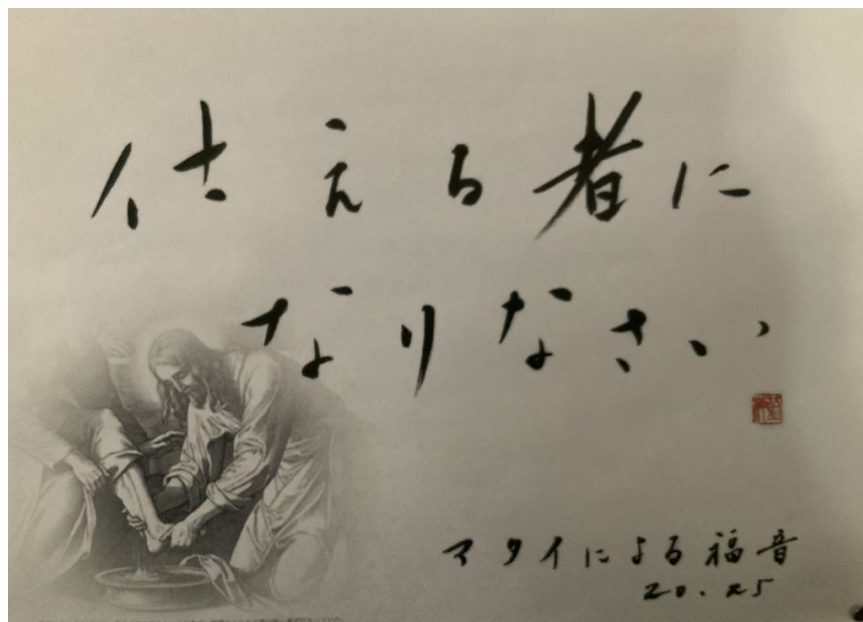 仕える者に
なりなさい
マタイによる福音
20.25